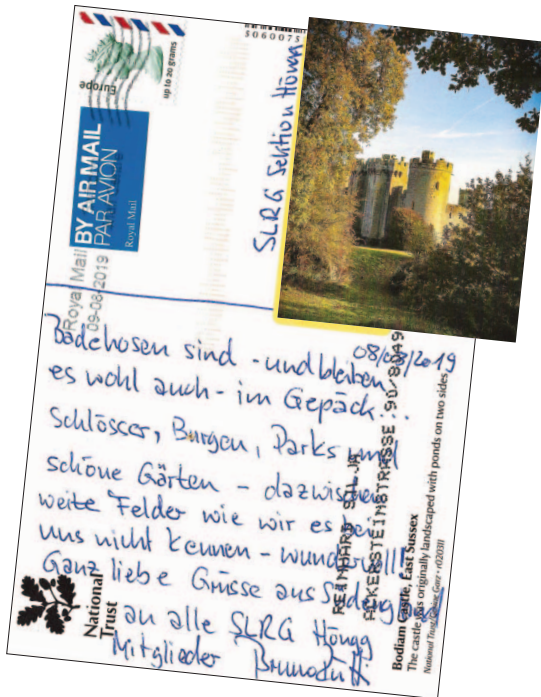 Europe
up to 20 grams
BY AIR MAIL
PAR AVION
Royal Mail
Royal Mail
09-08-2019
5060075
SLRG Sektion Höngg
08/08/2019
Badehosen sind - und bleiben
es wohl auch - im Gepäck...
Schlösser, Burgen, Parks und
schöne Gärten - dazwischen
weite Felder wie wir es bei
uns nicht kennen - wundervoll!
Ganz liebe Grüsse aus Südengland
an alle SLRG Höngg
Mitglieder
REINHARD SILJA
ACKERSTEINSTRASSE 90/8049
National
Trust
Bodiam Castle, East Sussex
The castle was originally landscaped with ponds on two sides